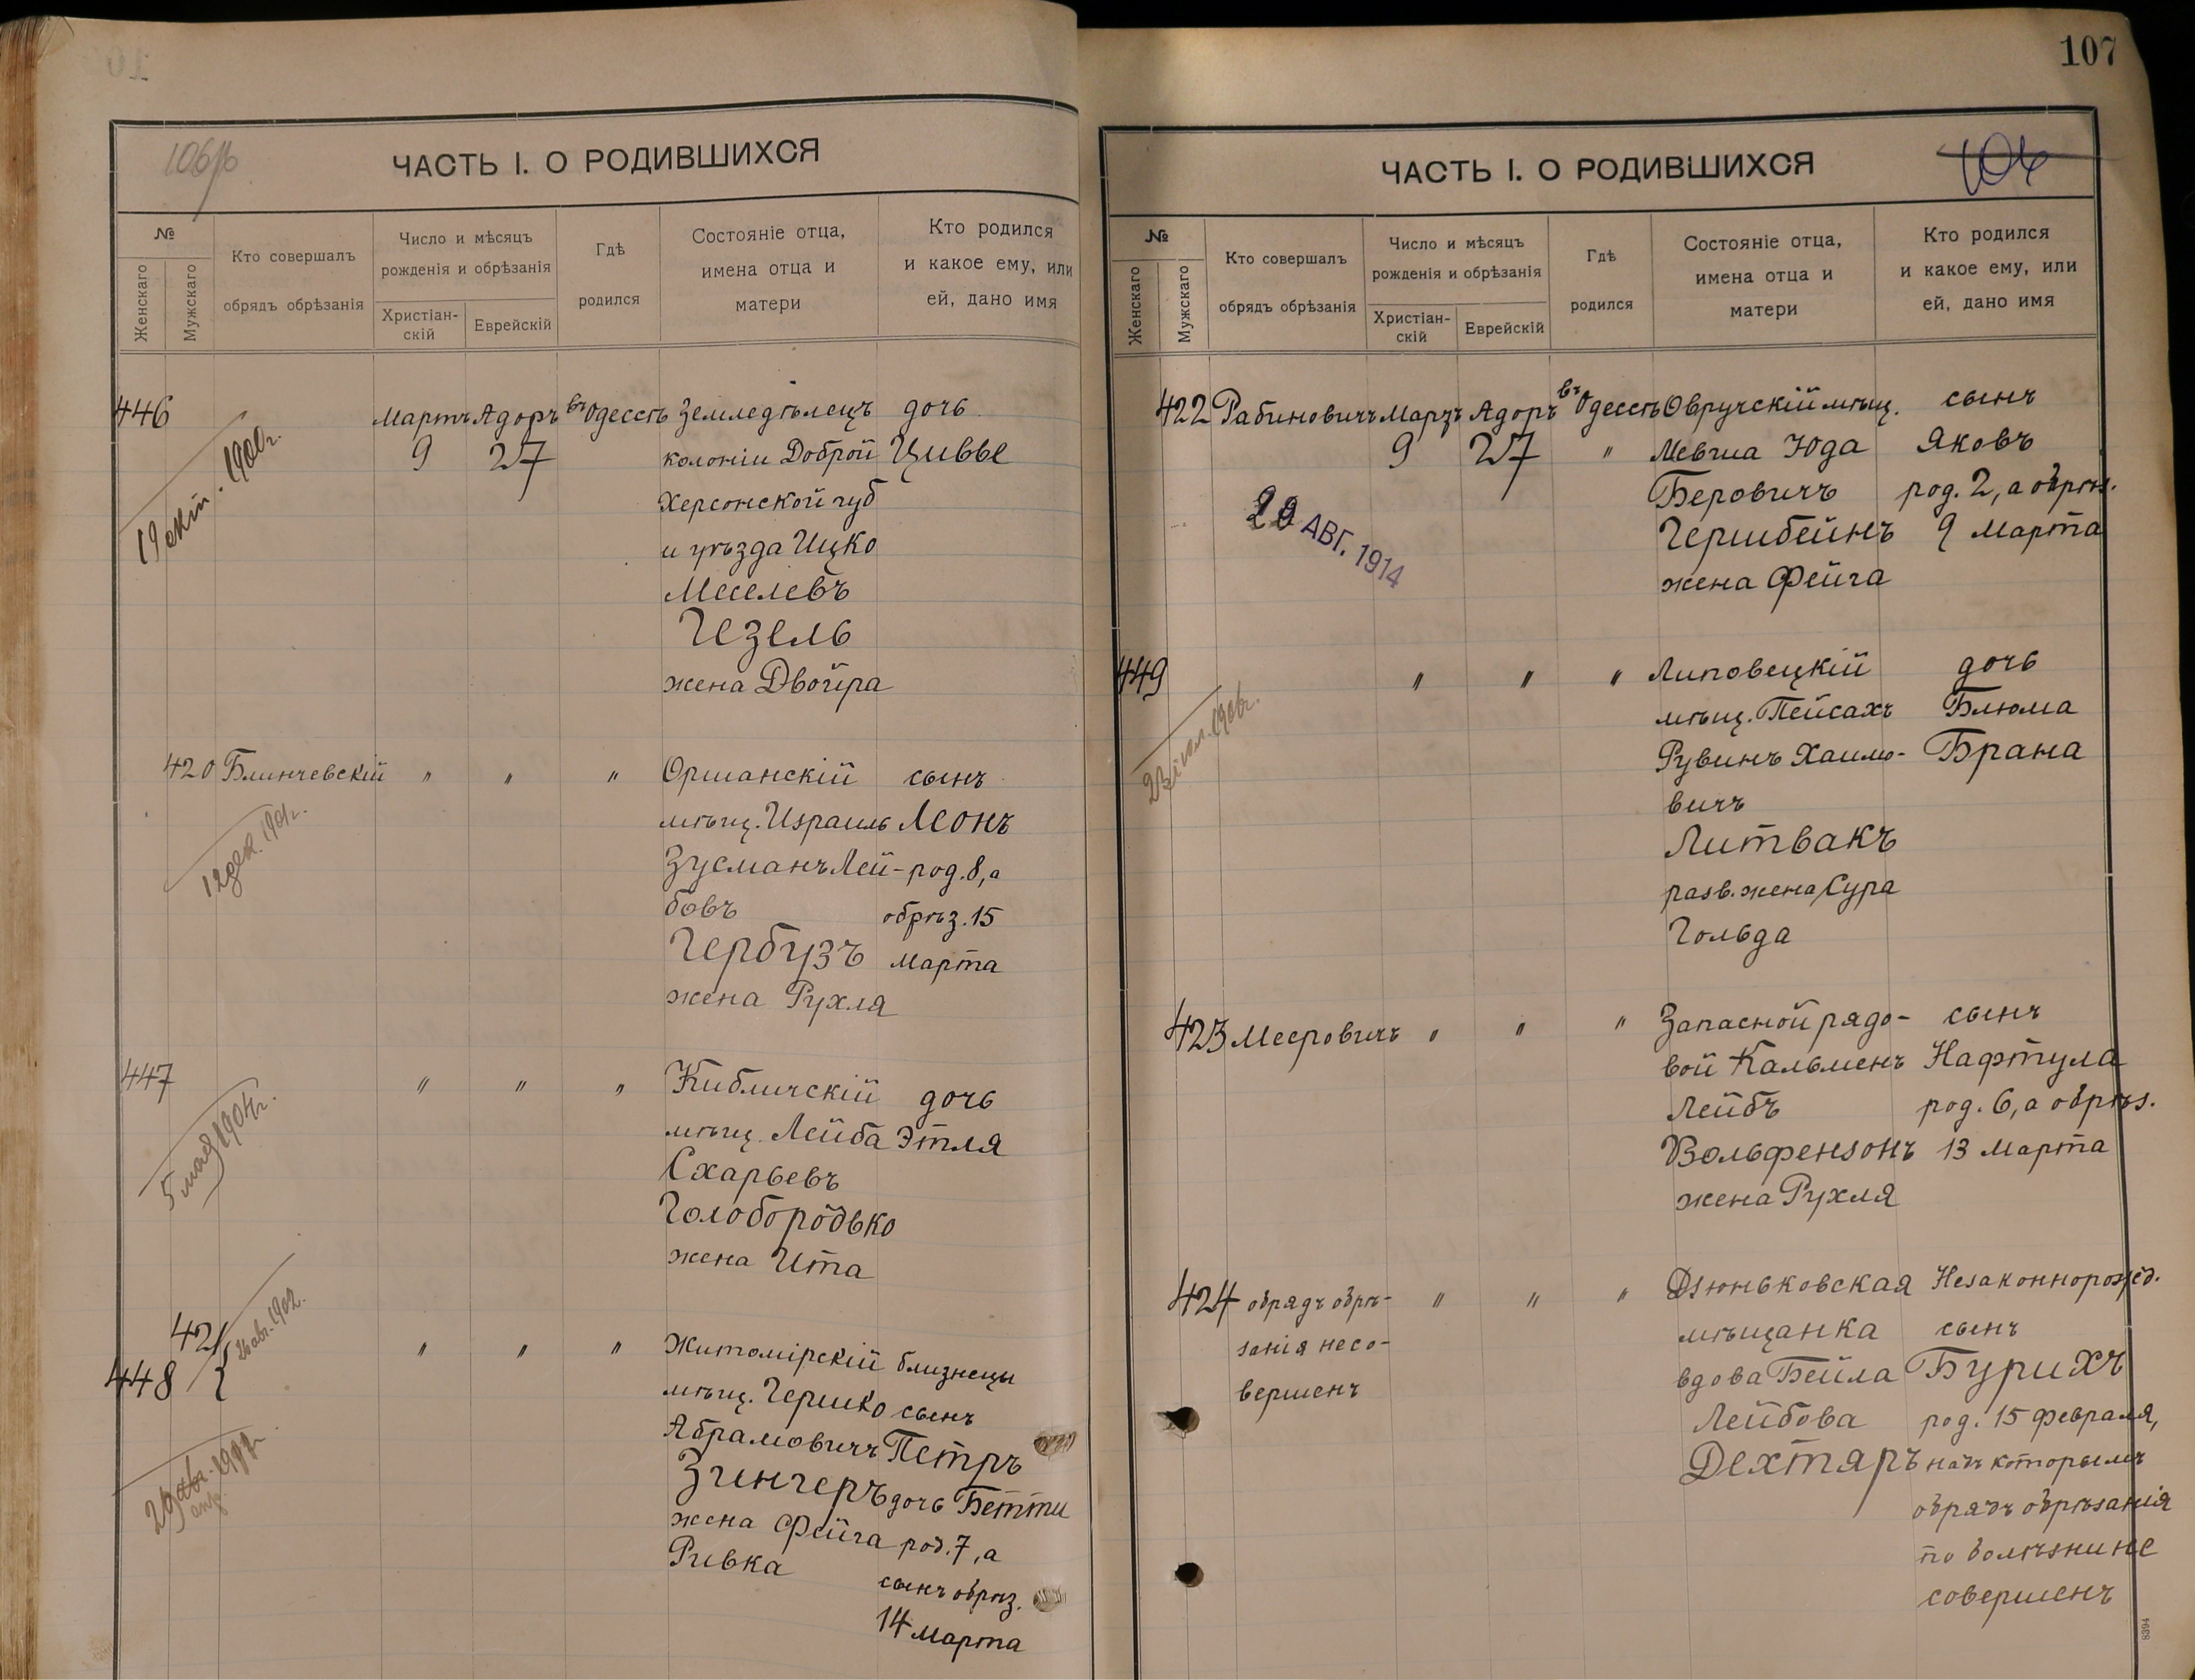 106
ЧАСТЬ I. О РОДИВШИХСЯ
№
Женскаго
Мужскаго
Кто совершалъ
обрядъ обрѣзанія
Число и мѣсяцъ
рожденія и обрѣзанія
Христіан-
скій
Еврейскій
Гдѣ
родился
Состояніе отца,
имена отца и
матери
Кто родился
и какое ему, или
ей, дано имя
446 Мартъ Адоръ въ Одессѣ Земледѣлецъ дочь
9 27 колоніи Доброй Цивье
Херсонской губ
и уѣзда Ицко
Меселевъ
Гезель
жена Двойра
1900г.
420 Блинчевскій " " " Оршанскій сынъ
мѣщ. Израиль Леонъ
Зусманъ Лей- род. 8, а
бовъ обрѣз. 15
Гербузъ марта
жена Рухля
12 дек. 1901г.
447 " " " Кибличскій дочь
мѣщ. Лейба Этля
Схарьевъ
Голобородько
жена Ита
5 мая 1904г.
421
448 { " " " Житомірскій близнецы
мѣщ. Гершко сынъ
Абрамовичъ Петръ
Зингеръ дочь Бетти
жена Фейга род. 7, а
Ривка сынъ обрѣз.
14 марта
26 авг. 1902.
107
104
ЧАСТЬ I. О РОДИВШИХСЯ
№
Женскаго
Мужскаго
Кто совершалъ
обрядъ обрѣзанія
Число и мѣсяцъ
рожденія и обрѣзанія
Христіан-
скій
Еврейскій
Гдѣ
родился
Состояніе отца,
имена отца и
матери
Кто родился
и какое ему, или
ей, дано имя
422 Рабиновичъ Мартъ Адоръ въ Одессѣ Овручскій мѣщ. сынъ
9 27 " Мевша Юда Яковъ
Беровичъ род. 2, а обрѣз.
Гершбейнъ 9 марта
жена Фейга
АВГ. 1914
449 " " " Липовецкій дочь
мѣщ. Пейсахъ Блюма
Рувинъ Хаимо- Брана
вичъ
Литвакъ
разв. жена Сура
Гольда
423 Мееровичъ " " " Запасной рядо- сынъ
вой Кальменъ Нафтула
Лейбъ род. 6, а обрѣз.
Вольфензонъ 13 марта
жена Рухля
424 обрядъ обрѣ- " " " Дзюньковская Незаконнорожд.
занія несо- мѣщанка сынъ
вершенъ вдова Бейла Бурихъ
Лейбова род. 15 февраля,
Дехтяръ надъ которымъ
обрядъ обрѣзанія
по болѣзни не
совершенъ
8394